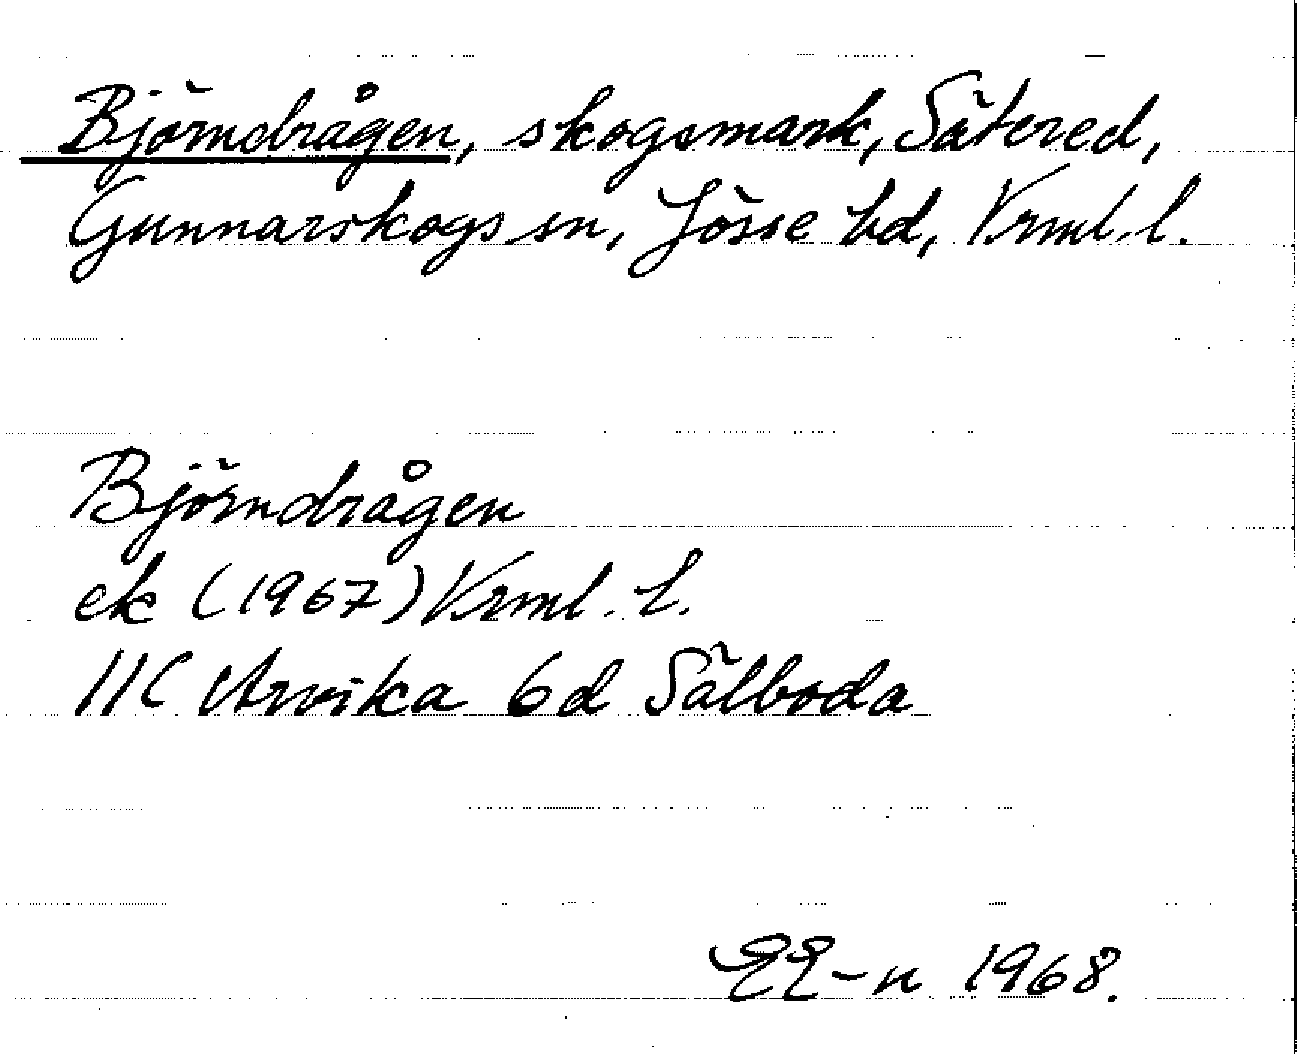 Björndrågen, skogsmark, Sätered,
Gunnarskogs sn, Jösse hd, Vrml. l.
Björndrågen
ek (1967) Vrml. l.
11C Arvika 6d Sälboda
EE-n 1968.